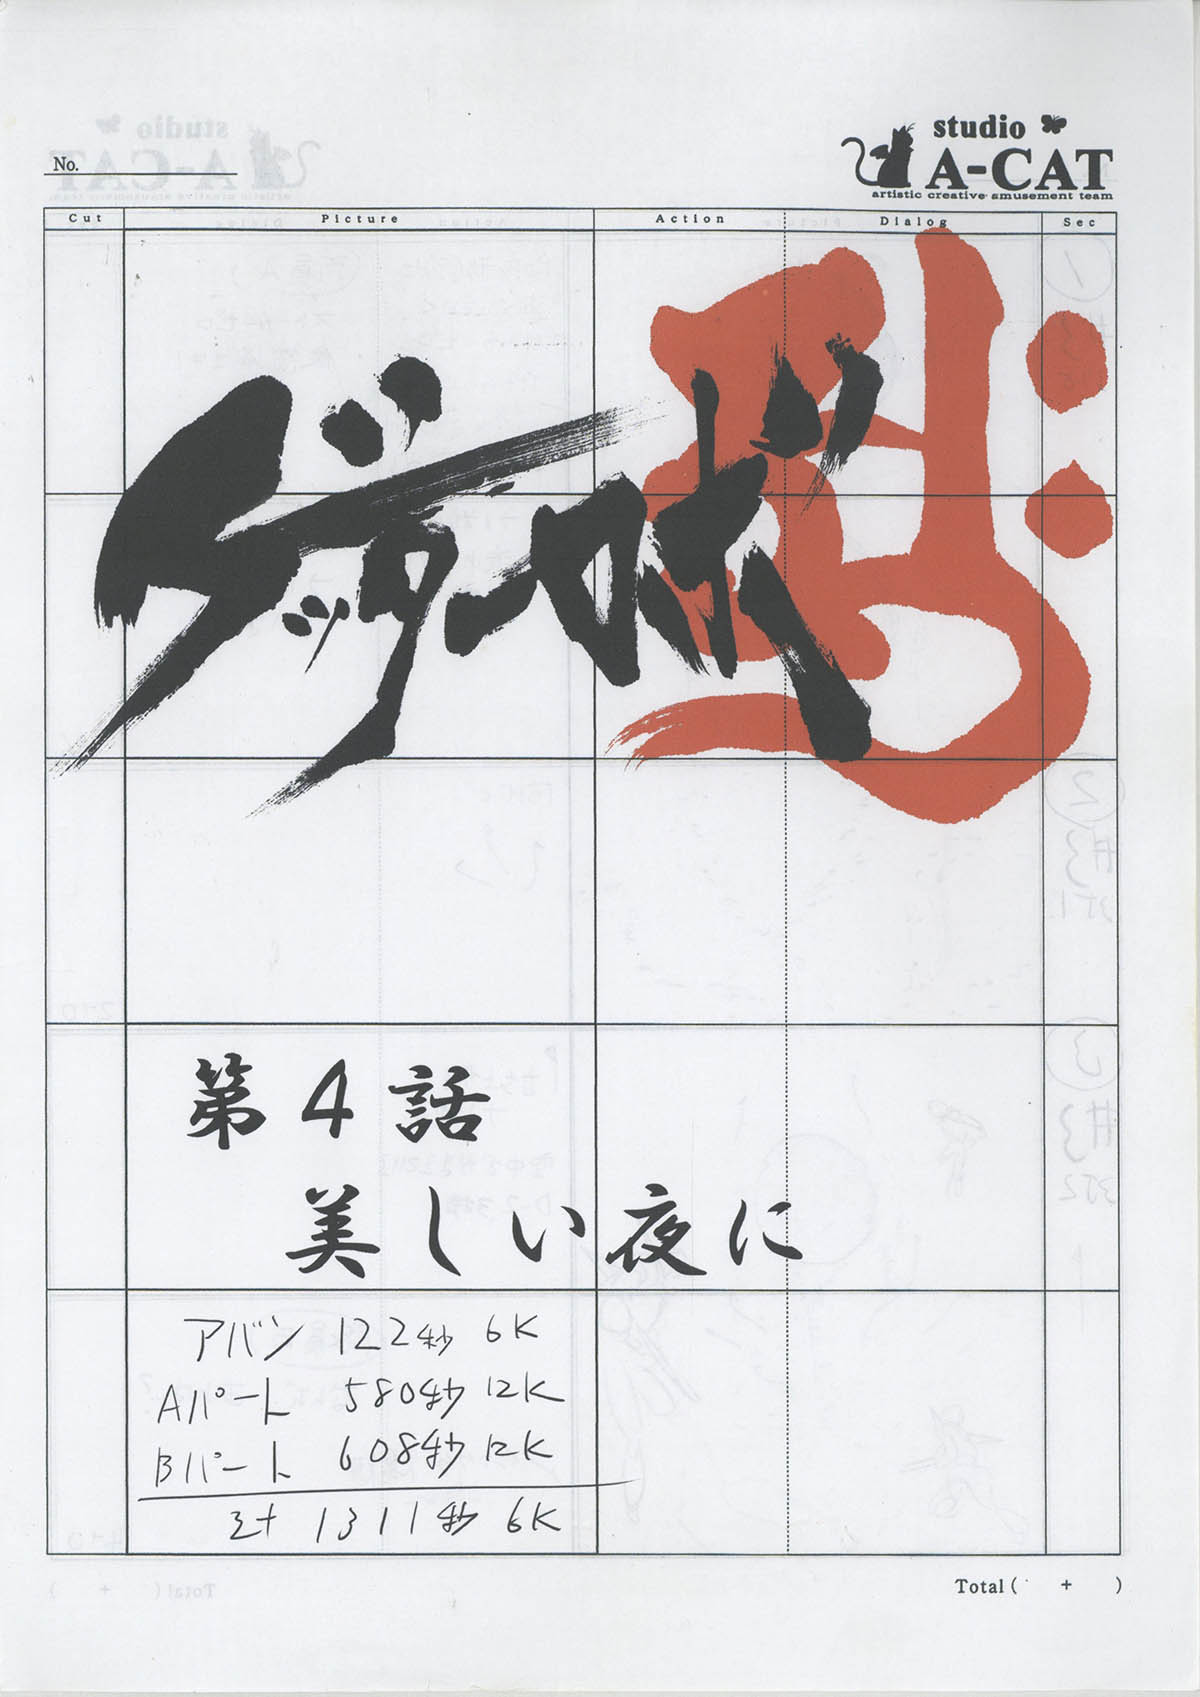 studio
A-CAT
artistic creative amusement team
No.
Cut Picture Action Dialog Sec
ゲッターロボ
第4話
美しい夜に
アバン 122秒 6K
Aパート 580秒 12K
Bパート 608秒 12K
計 1311秒 6K
Total ( + )